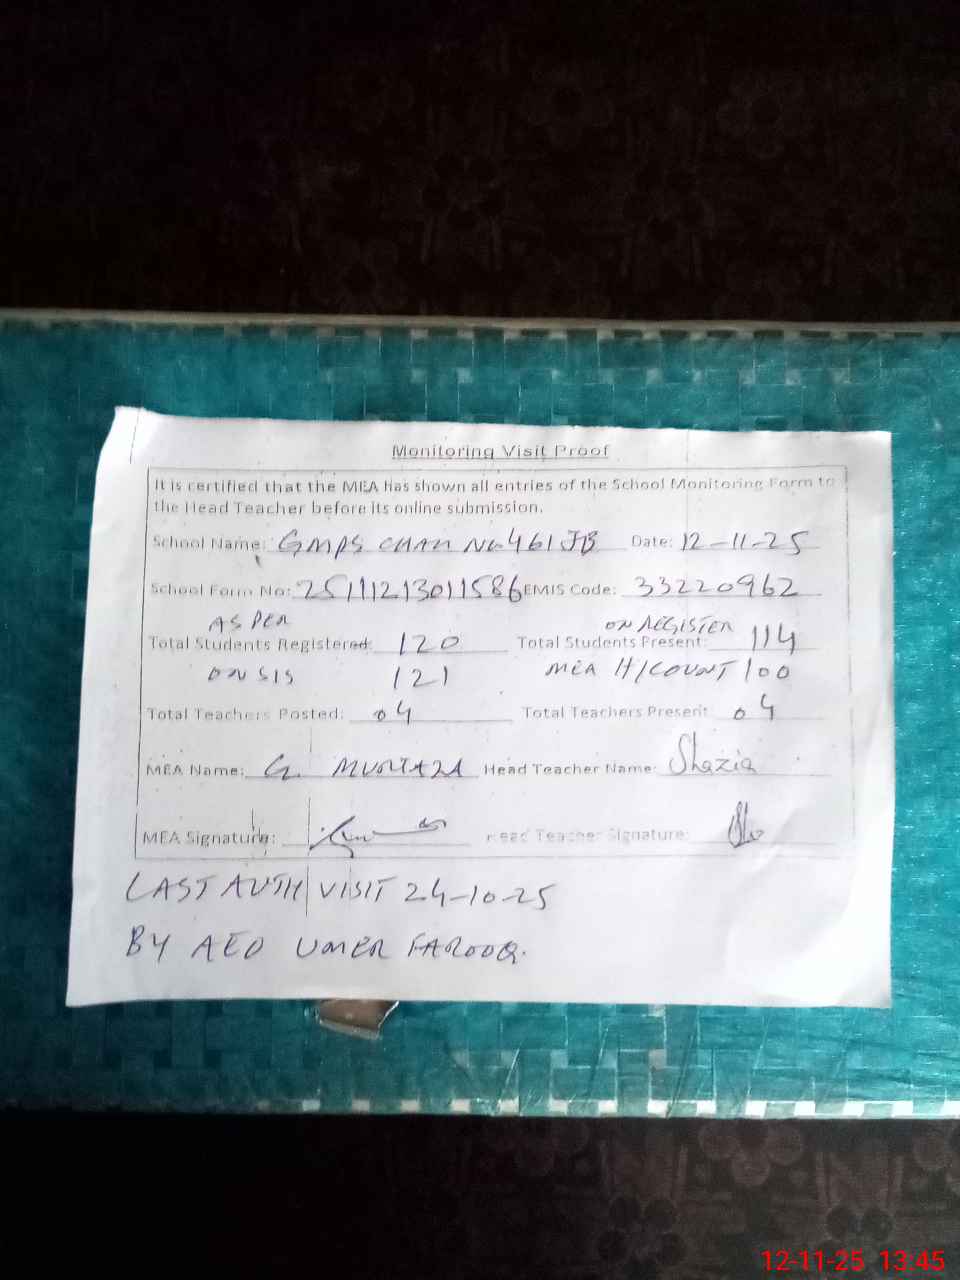 Monitoring Visit Proof
It is certified that the MEA has shown all entries of the School Monitoring Form to
the Head Teacher before its online submission.
School Name: GMPS CHAK No 461 JB Date: 12-11-25
School Form No: 25111213011586 EMIS Code: 33220962
AS PER ON REGISTER
Total Students Registered: 120 Total Students Present: 114
ON SIS 121 MEA H/COUNT 100
Total Teachers Posted: 04 Total Teachers Present 04
MEA Name: G. MURTAZA Head Teacher Name: Shazia
MEA Signature: Head Teacher Signature:
LAST AUTH VISIT 24-10-25
BY AEO UMER FAROOQ.
12-11-25 13:45